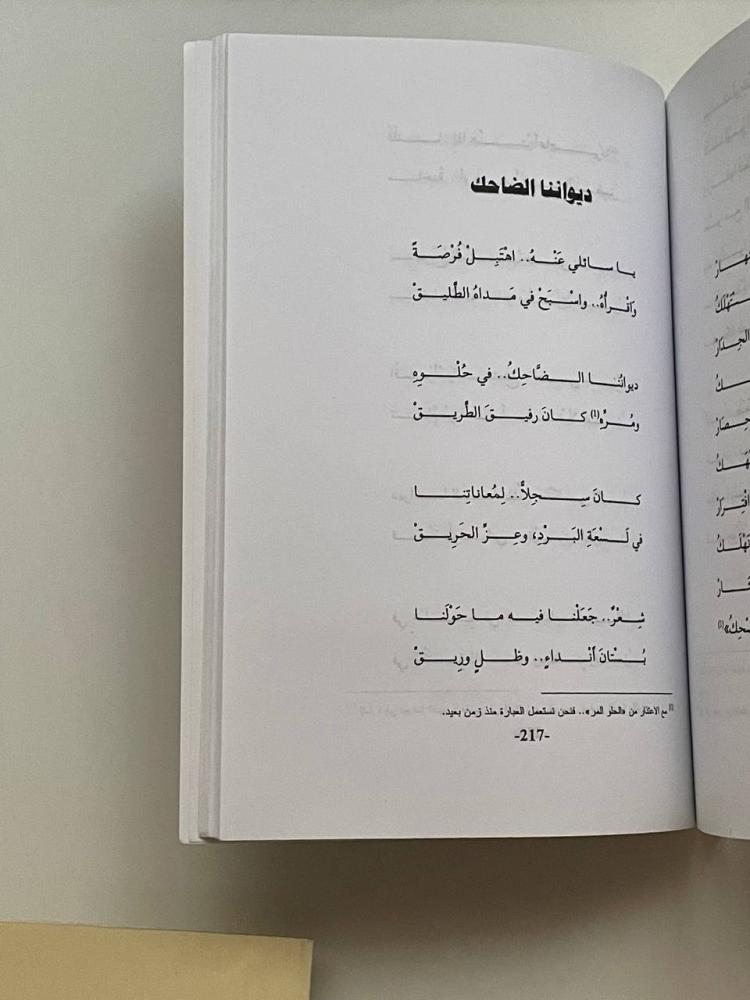 ديواننا الضاحك
يا سائلي عَنْهُ.. اهْتَبِلْ فُرْصَةً
وَاقْرأْهُ.. واسْبَحْ في مَداهُ الطَّليقْ
ديوانُنا الضَّاحِكُ.. في حُلْوِهِ
ومُرِّهِ(1) كانَ رفيقَ الطَّريقْ
كانَ سِجِلاًّ.. لِمُعاناتِنا
في لَسْعَةِ البَرْدِ، وعِزِّ الحَرِيقْ
شِعْرٌ.. جَعَلْنا فيه ما حَوْلَنا
بُسْتانَ أنْداءٍ.. وظلٍ وريقْ
(1) مع الاعتذار من «الحلو المر».. فنحن نستعمل العبارة منذ زمن بعيد.
-217-
الجِدَارْ